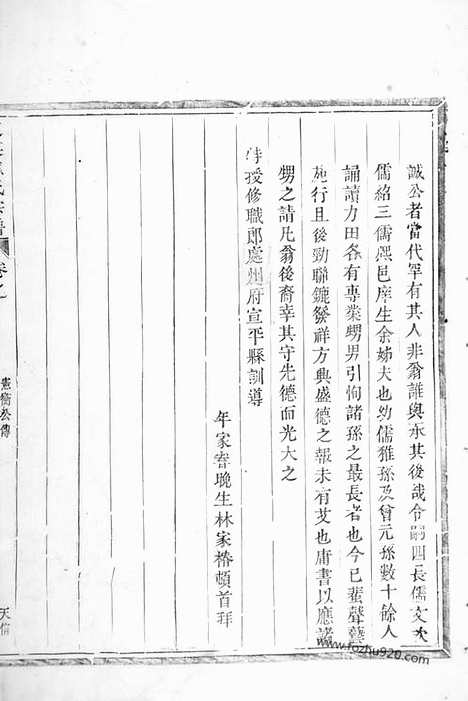 誠公者當代罕有其人非翁誰與永其後哉令嗣四長儒文次
儒紹三儒熙邑庠生余姊夫也幼儒雅孫及曾元孫數十餘人
誦讀力田各有專業甥男引恂諸孫之最長者也今已蜚聲黌
施行且後勁聯鑣發祥方興盛德之報未有艾也庸書以應諸
甥之請凡翁後裔幸其守先德而光大之
特授修職郎處州府宣平縣訓導
年家眷晚生林家椿頓首拜
氏宗譜
卷之
公傳
www.fozhu920.com